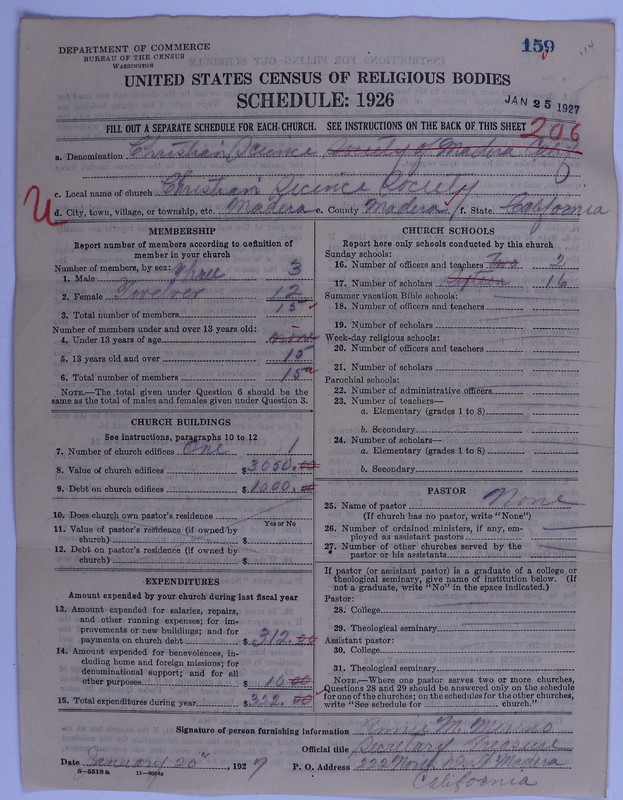 DEPARTMENT OF COMMERCE
BUREAU OF THE CENSUS
WASHINGTON
159
UNITED STATES CENSUS OF RELIGIOUS BODIES
SCHEDULE: 1926
JAN 25 1927
FILL OUT A SEPARATE SCHEDULE FOR EACH CHURCH. SEE INSTRUCTIONS ON THE BACK OF THIS SHEET
206
a. Denomination Christian Science Society of Madera Calif
c. Local name of church Christian Science Society
d. City, town, village, or township, etc. Madera e. County Madera f. State California
MEMBERSHIP
Report number of members according to definition of member in your church
Number of members, by sex:
1. Male Three 3
2. Female Twelve 12
3. Total number of members 15
Number of members under and over 13 years old:
4. Under 13 years of age none
5. 13 years old and over 15
6. Total number of members 15
NOTE.—The total given under Question 6 should be the same as the total of males and females given under Question 3.
CHURCH BUILDINGS
See instructions, paragraphs 10 to 12
7. Number of church edifices One 1
8. Value of church edifices $3050.00
9. Debt on church edifices $1000.00
10. Does church own pastor's residence
Yes or No
11. Value of pastor's residence (if owned by church) $
12. Debt on pastor's residence (if owned by church) $
EXPENDITURES
Amount expended by your church during last fiscal year
13. Amount expended for salaries, repairs, and other running expenses; for improvements or new buildings; and for payments on church debt $312.00
14. Amount expended for benevolences, including home and foreign missions; for denominational support; and for all other purposes $10.00
15. Total expenditures during year $322.00
CHURCH SCHOOLS
Report here only schools conducted by this church
Sunday schools:
16. Number of officers and teachers Two 2
17. Number of scholars 16
Summer vacation Bible schools:
18. Number of officers and teachers
19. Number of scholars
Week-day religious schools:
20. Number of officers and teachers
21. Number of scholars
Parochial schools:
22. Number of administrative officers
23. Number of teachers—
a. Elementary (grades 1 to 8)
b. Secondary
24. Number of scholars—
a. Elementary (grades 1 to 8)
b. Secondary
PASTOR
25. Name of pastor None
(If church has no pastor, write "None")
26. Number of ordained ministers, if any, employed as assistant pastors
27. Number of other churches served by the pastor or his assistants
If pastor (or assistant pastor) is a graduate of a college or theological seminary, give name of institution below. (If not a graduate, write "No" in the space indicated.)
Pastor:
28. College
29. Theological seminary
Assistant pastor:
30. College
31. Theological seminary
NOTE.—Where one pastor serves two or more churches, Questions 28 and 29 should be answered only on the schedule for one of the churches; on the schedules for the other churches, write "See schedule for church."
Signature of person furnishing information
Official title Secretary
Date January 20" , 1927 P. O. Address 222 North Madera
California
8-5518a